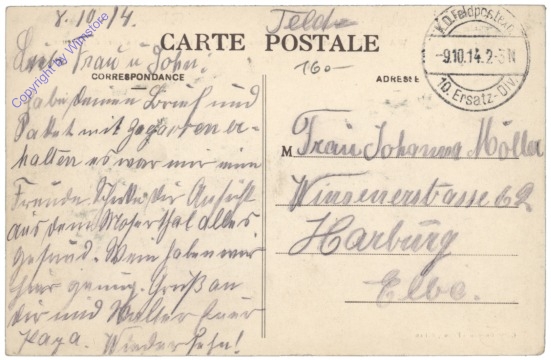 8.10.14.
CARTE POSTALE
CORRESPONDANCE
ADRESSE
160-
Copyright by Whmstore
K.D. Feldpostexp.
-9.10.14. 2-3 N
10. Ersatz-Div.
Liebe Frau u Sohn.
habe deinen Brief und
Paket mit Zigarren er-
halten es war mir eine
Freude Schicke dir Ansicht
aus dem Moselthal alles
gesund. Wein haben wir
hier genug. Gruß an
dir und Walter Euer
Papa. Wiedersehn!
M Frau Johanna Möller
Winsenerstrasse 62
Harburg
Elbe.